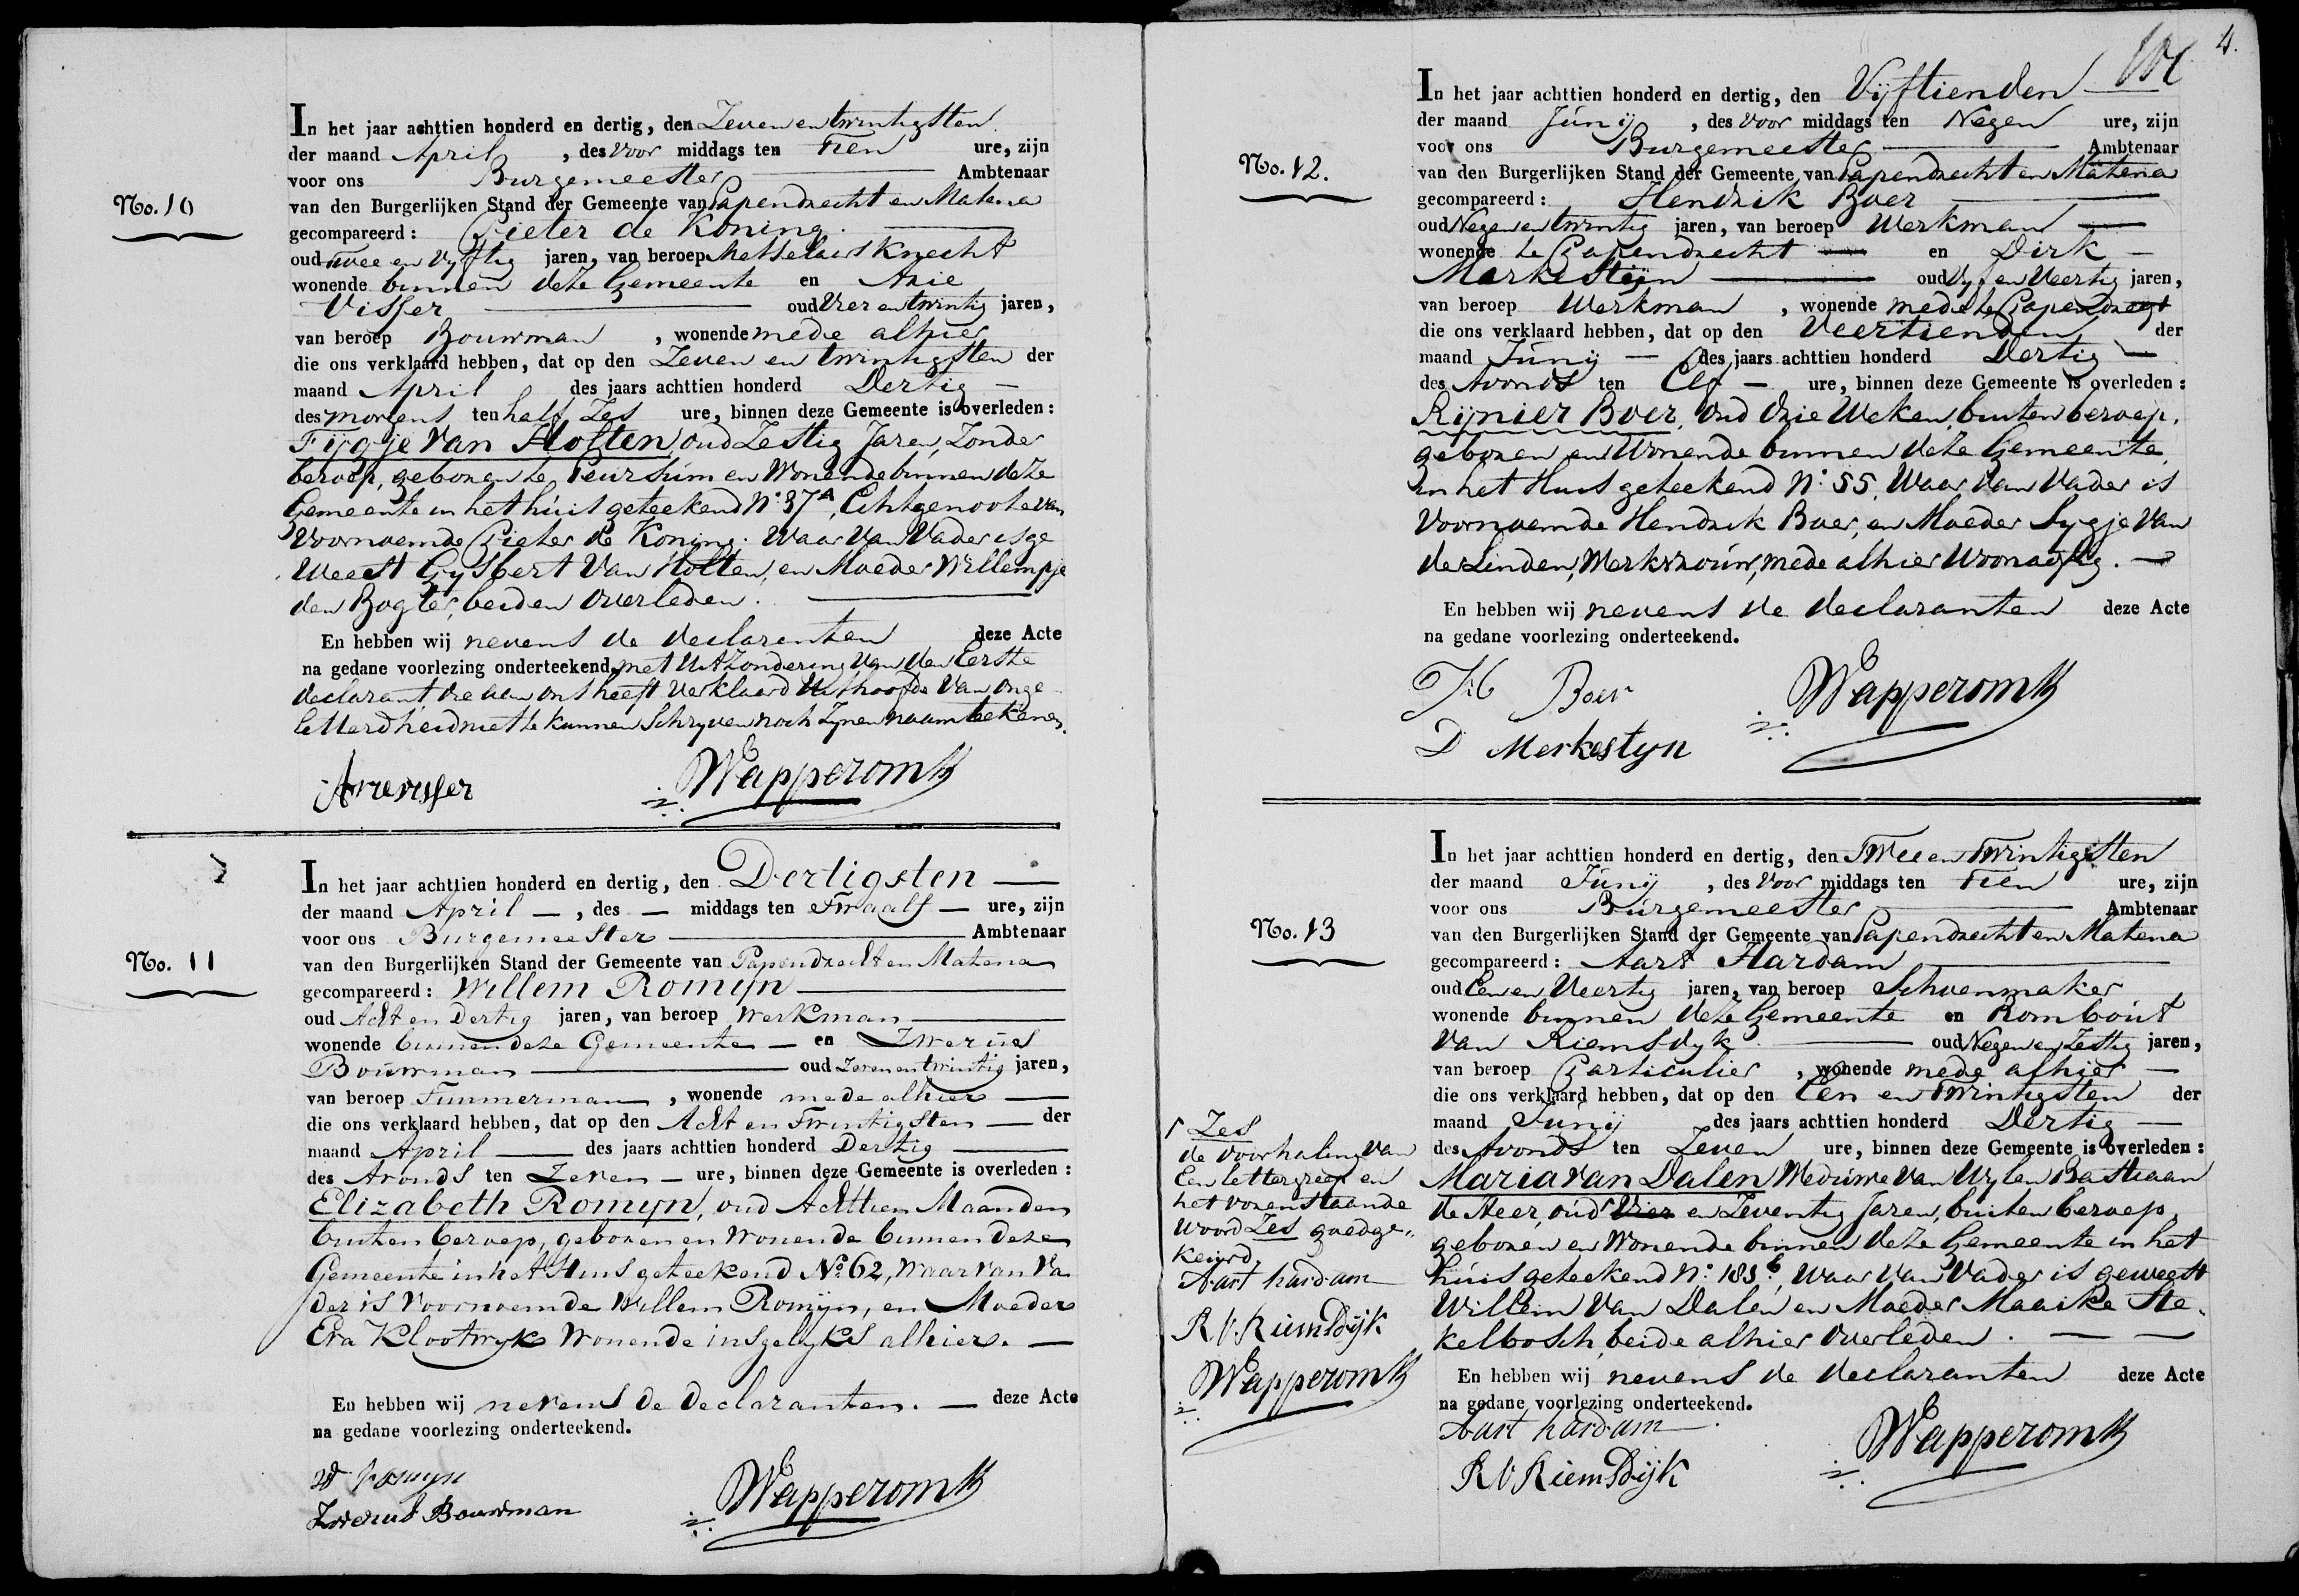 No. 10
In het jaar achttien honderd en dertig, den Zeven en twintigsten
der maand April , des Voor middags ten Tien ure, zijn
voor ons Burgemeester Ambtenaar
van den Burgerlijken Stand der Gemeente van Papendrecht en Matena
gecompareerd: Pieter de Koning.
oud twee en vyftig jaren, van beroep Metselaars Knecht
wonende binnen deze Gemeente en Arie
Visser oud Vier en twintig jaren,
van beroep Bouwman , wonende mede alhier
die ons verklaard hebben, dat op den Zeven en twintigsten der
maand April des jaars achttien honderd Dertig —
des morgens ten half Zes ure, binnen deze Gemeente is overleden:
Fijgje van Holten, oud Zestig Jaren, Zonder
beroep, geboren te Peursum en Wonende binnen deze
Gemeente in het huis geteekend N: 37A, Echtgenoote van
Voornoemde Pieter de Koning. Waar Van Vader is ge
Weest Gysbert Van Holten, en Moeder Willempje
den Bogter, beiden Overleden.
En hebben wij nevens de declaranten deze Acte
na gedane voorlezing onderteekend, met Uitzondering van den Eerste
declarant, die aan ons heeft Verklaard Uit hoofde Van onge
letterdheid niet te kunnen Schryven noch Zynen naam teekenen.
Arie visser Wapperom
No. 11
In het jaar achttien honderd en dertig, den Dertigsten —
der maand April — , des — middags ten Twaalf — ure, zijn
voor ons Burgemeester Ambtenaar
van den Burgerlijken Stand der Gemeente van Papendrecht en Matena
gecompareerd: Willem Romijn
oud Acht en Dertig jaren, van beroep Werkman
wonende binnen deze Gemeente — en Zwerus
Bouwman oud Zeven en twintig jaren,
van beroep Timmerman , wonende mede alhier —
die ons verklaard hebben, dat op den Acht en Twintigsten — der
maand April — des jaars achttien honderd Dertig —
des Avonds ten Zeven — ure, binnen deze Gemeente is overleden:
Elizabeth Romyn, oud Achttien Maanden
buiten beroep, geboren en Wonende binnen deze
Gemeente in het Huis geteekend No 62, Waar van Va
der is Voornoemde Willem Romijn, en Moeder
Eva Klootwyk Wonende insgelyks alhier. —
En hebben wij nevens de Declaranten. — deze Acte
na gedane voorlezing onderteekend.
W Romyn
Zwerus Bouwman Wapperom
4.
No. 12.
In het jaar achttien honderd en dertig, den Vijftienden
der maand Junij , des Voor middags ten Negen ure, zijn
voor ons Burgemeester Ambtenaar
van den Burgerlijken Stand der Gemeente van Papendrecht en Matena
gecompareerd: Hendrik Boer
oud Negen en twintig jaren, van beroep Werkman
wonende te Papendrecht en Dirk —
Merkesteijn oud Vyf en Veertig jaren,
van beroep Werkman , wonende mede te Papendregt
die ons verklaard hebben, dat op den Veertienden der
maand Junij — des jaars achttien honderd Dertig —
des Avonds ten Elf — ure, binnen deze Gemeente is overleden:
Rijnier Boer, Oud Drie Weken, buiten beroep,
geboren en Wonende binnen deze Gemeente,
in het Huis geteekend N: 55, Waar Van Vader is
Voornoemde Hendrik Boer, en Moeder Sygje Van
der Linden, Werkvrouw, mede alhier Woonagtig. —
En hebben wij nevens de declaranten deze Acte
na gedane voorlezing onderteekend.
H Boer Wapperom
D Merkestyn
No. 13
In het jaar achttien honderd en dertig, den Twee en Twintigsten
der maand Junij , des Voor middags ten Tien ure, zijn
voor ons Burgemeester Ambtenaar
van den Burgerlijken Stand der Gemeente van Papendrecht en Matena
gecompareerd: Aart Hardam
oud Een en Veertig jaren, van beroep Schoenmaker
wonende binnen deze Gemeente en Rombout
Van Riemsdyk oud Negen en Zestig jaren,
van beroep Particulier , wonende mede alhier —
die ons verklaard hebben, dat op den Een en Twintigsten der
maand Junij des jaars achttien honderd Dertig —
des Avonds ten Zeven ure, binnen deze Gemeente is overleden:
Maria van Dalen Weduwe Van Wylen Bastiaan
de Heer, oud Vier en Zeventig Jaren, buiten beroep,
geboren en Wonende binnen deze Gemeente in het
huis geteekend N: 183b, Waar Van Vader is geweest
Willem Van Dalen en Moeder Maaike Ste-
kelbosch, beide alhier Overleden. — —
En hebben wij nevens de declaranten deze Acte
na gedane voorlezing onderteekend.
Aart hardam
R V. Riemsdijk Wapperom
Zes
de doorhaling van
Een lettergreep en
het vorenstaande
woord Zes goedge-
keurd,
Aart hardam
R V. Riemsdijk
Wapperom